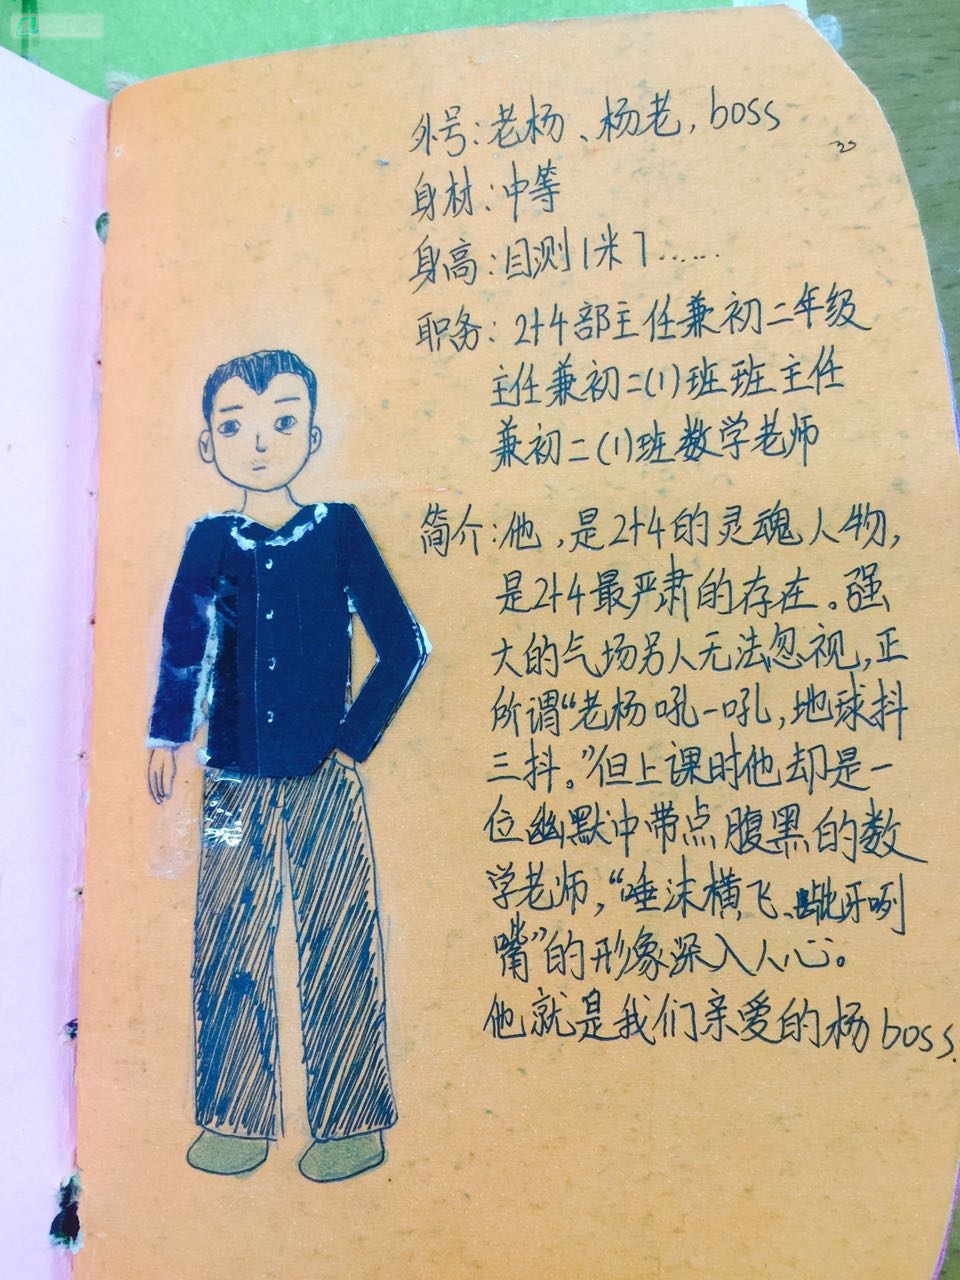 外号:老杨、杨老,boss
身材:中等
身高:目测1米7……
职务:2+4部主任兼初二年级
主任兼初二(1)班班主任
兼初二(1)班数学老师
简介:他,是2+4的灵魂人物,
是2+4最严肃的存在。强
大的气场另人无法忽视,正
所谓“老杨吼一吼,地球抖
三抖。”但上课时他却是一
位幽默中带点腹黑的数
学老师,“唾沫横飞、龇牙咧
嘴”的形象深入人心。
他就是我们亲爱的杨boss.